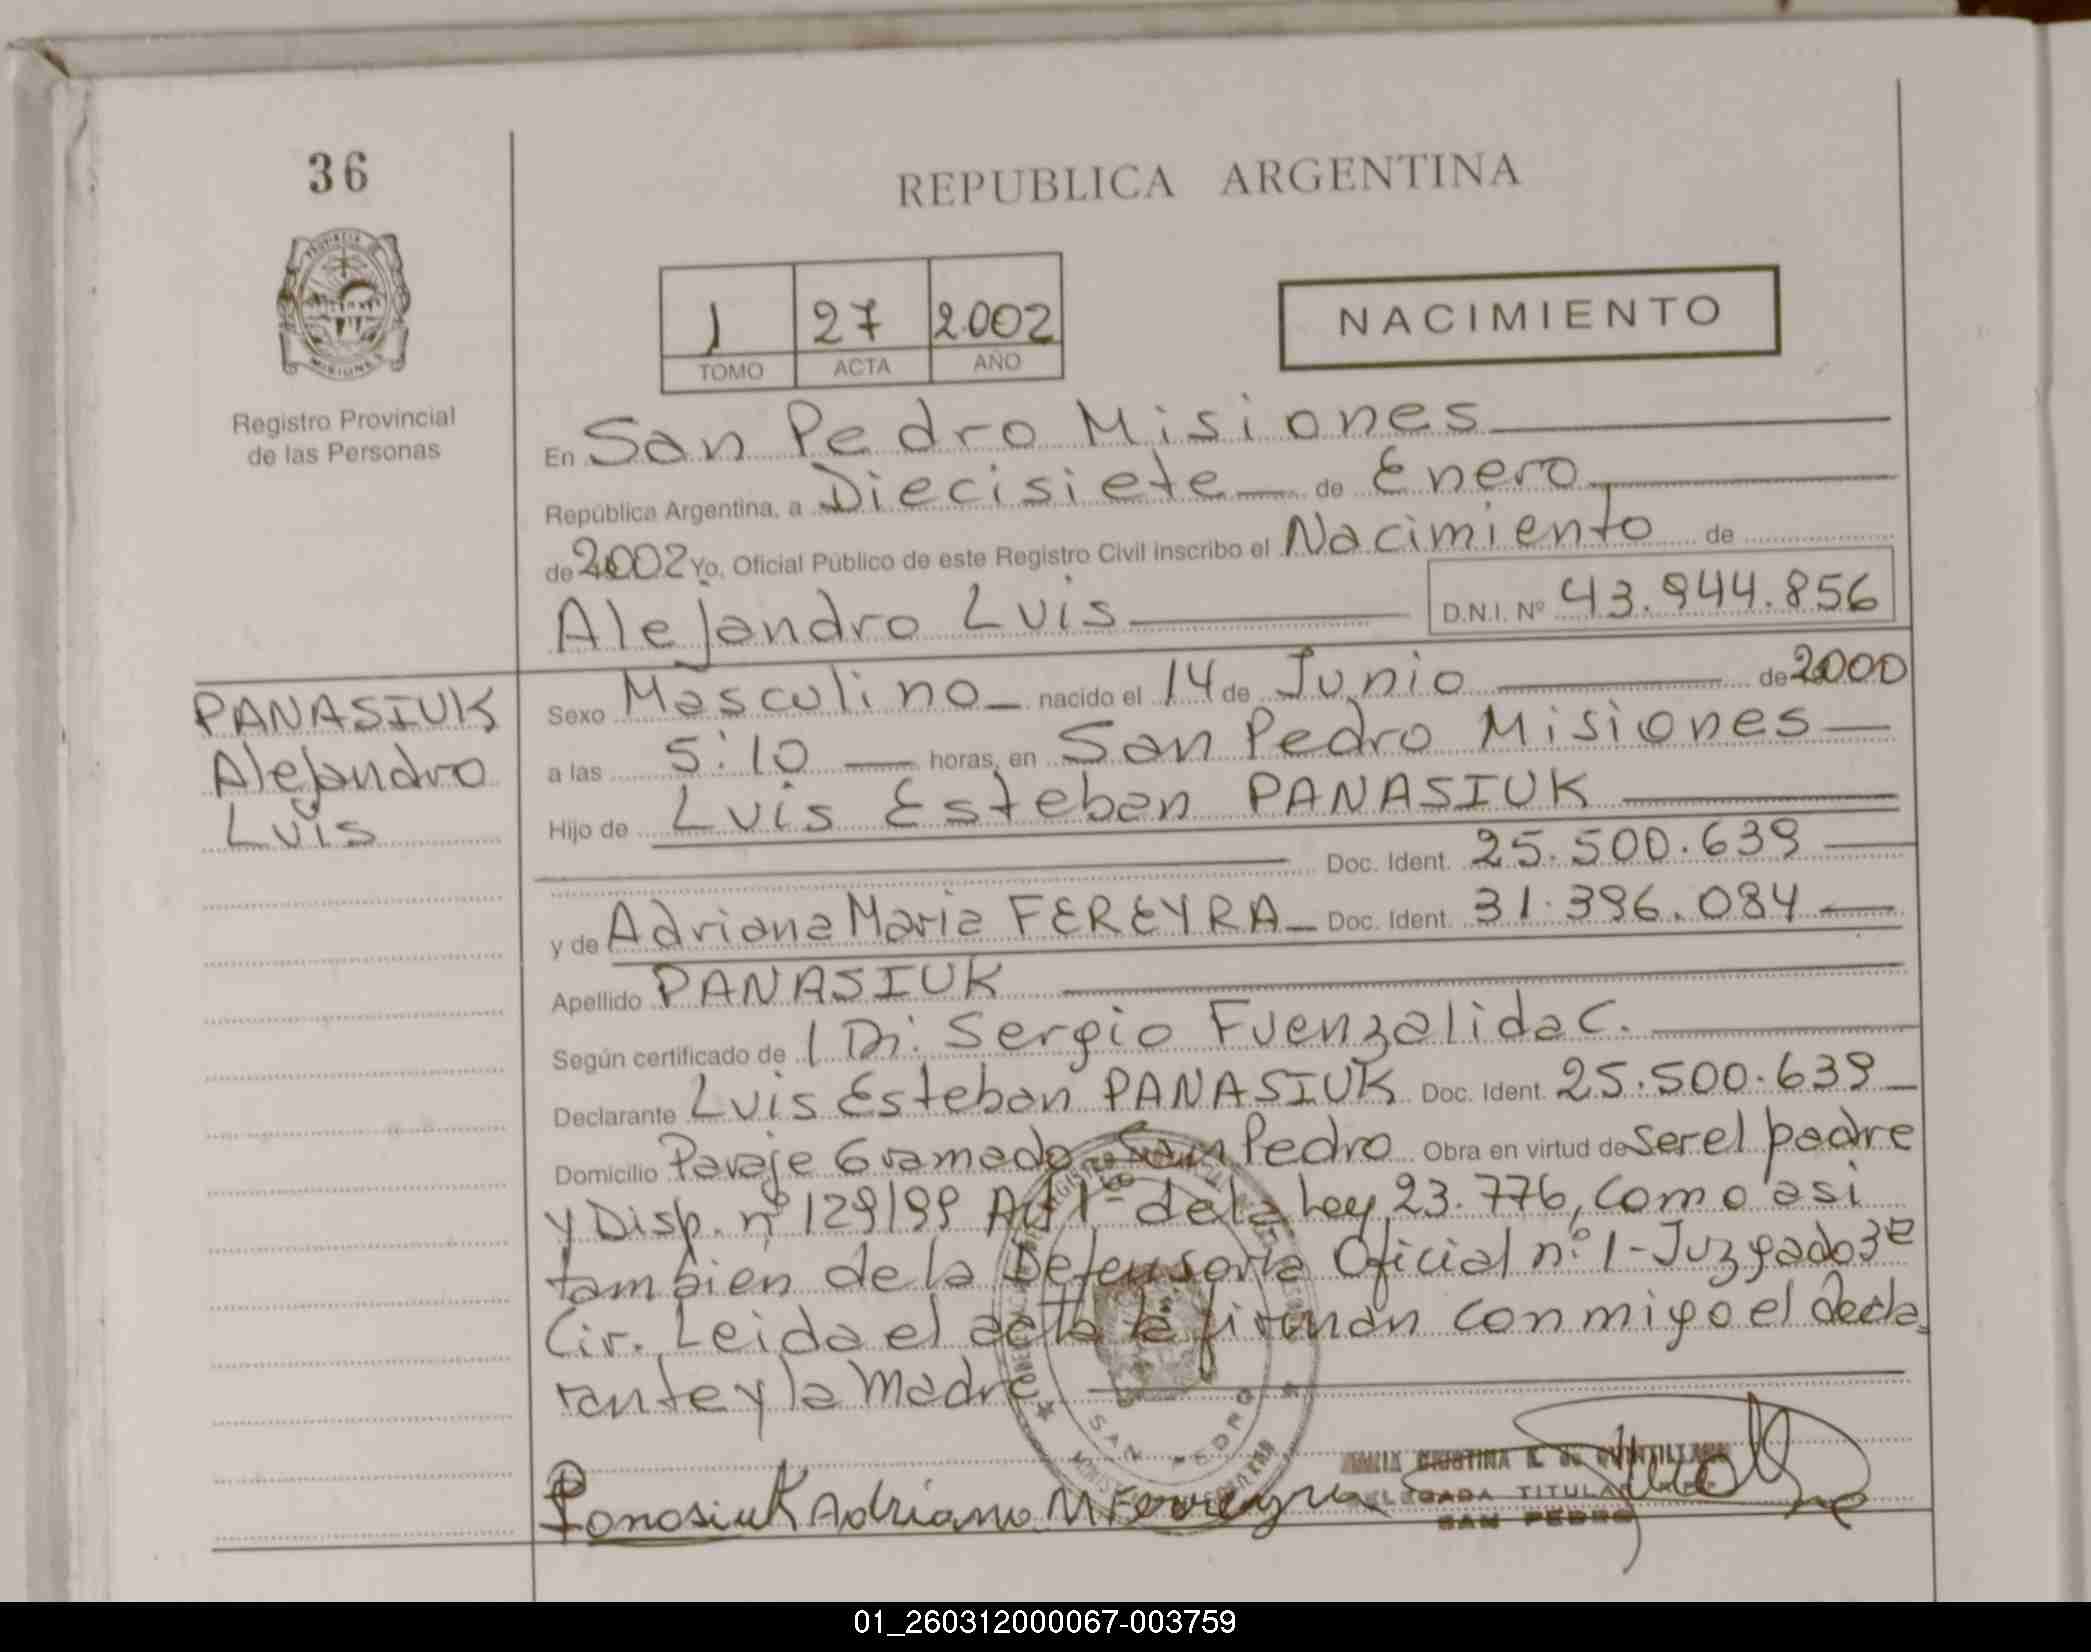 36
REPUBLICA ARGENTINA
PROVINCIA DE
MISIONES
Registro Provincial
de las Personas
1 27 2002
TOMO ACTA AÑO
NACIMIENTO
En San Pedro Misiones
República Argentina, a Diecisiete de Enero
de 2002 Yo, Oficial Público de este Registro Civil inscribo el Nacimiento de
Alejandro Luis D.N.I. Nº 43.944.856
PANASIUK
Alejandro
Luis
Sexo Masculino nacido el 14 de Junio de 2000
a las 5:10 horas, en San Pedro Misiones
Hijo de Luis Esteban PANASIUK
Doc. Ident. 25.500.639
y de Adriana Maria FEREYRA Doc. Ident. 31.396.084
Apellido PANASIUK
Según certificado de Sergio Fuenzalida C.
Declarante Luis Esteban PANASIUK Doc. Ident. 25.500.639
Domicilio Paraje Gramado San Pedro Obra en virtud de ser el padre
y Disp. nº 129/99 Art 1º de la Ley 23.776, como asi
tambien de la Defensoria Oficial nº 1 - Juzgado 3ª
Cir. Leida el acta la firman conmigo el decla
rante y la madre
SAN PEDRO
Panasiuk Adriana M Ferreyra
CRISTINA
DELEGADA TITULAR
SAN PEDRO
01_260312000067-003759